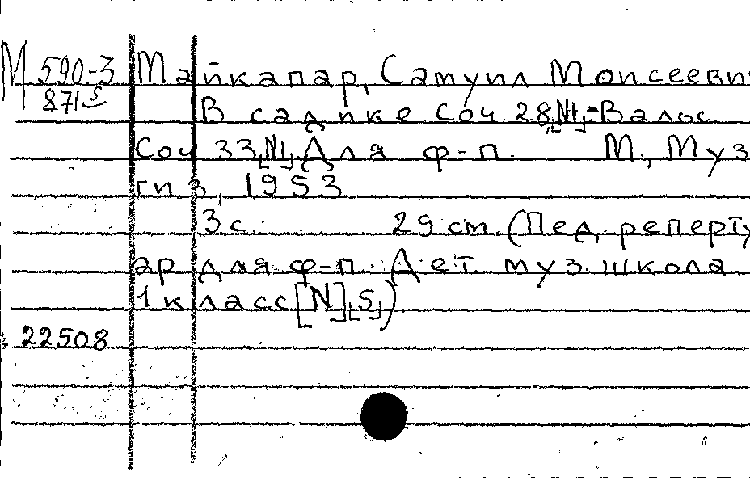 М 590-3 Майкапар, Самуил Моисеевич
871 В садике Соч 28, №1 - Вальс
Соч 33, №1. Для ф-п. М., Муз
гиз, 1953
3 с. 29 cm. (Пед. реперту
ар для ф-п. Дет. муз. школа
1 класс [N], [5])
22508